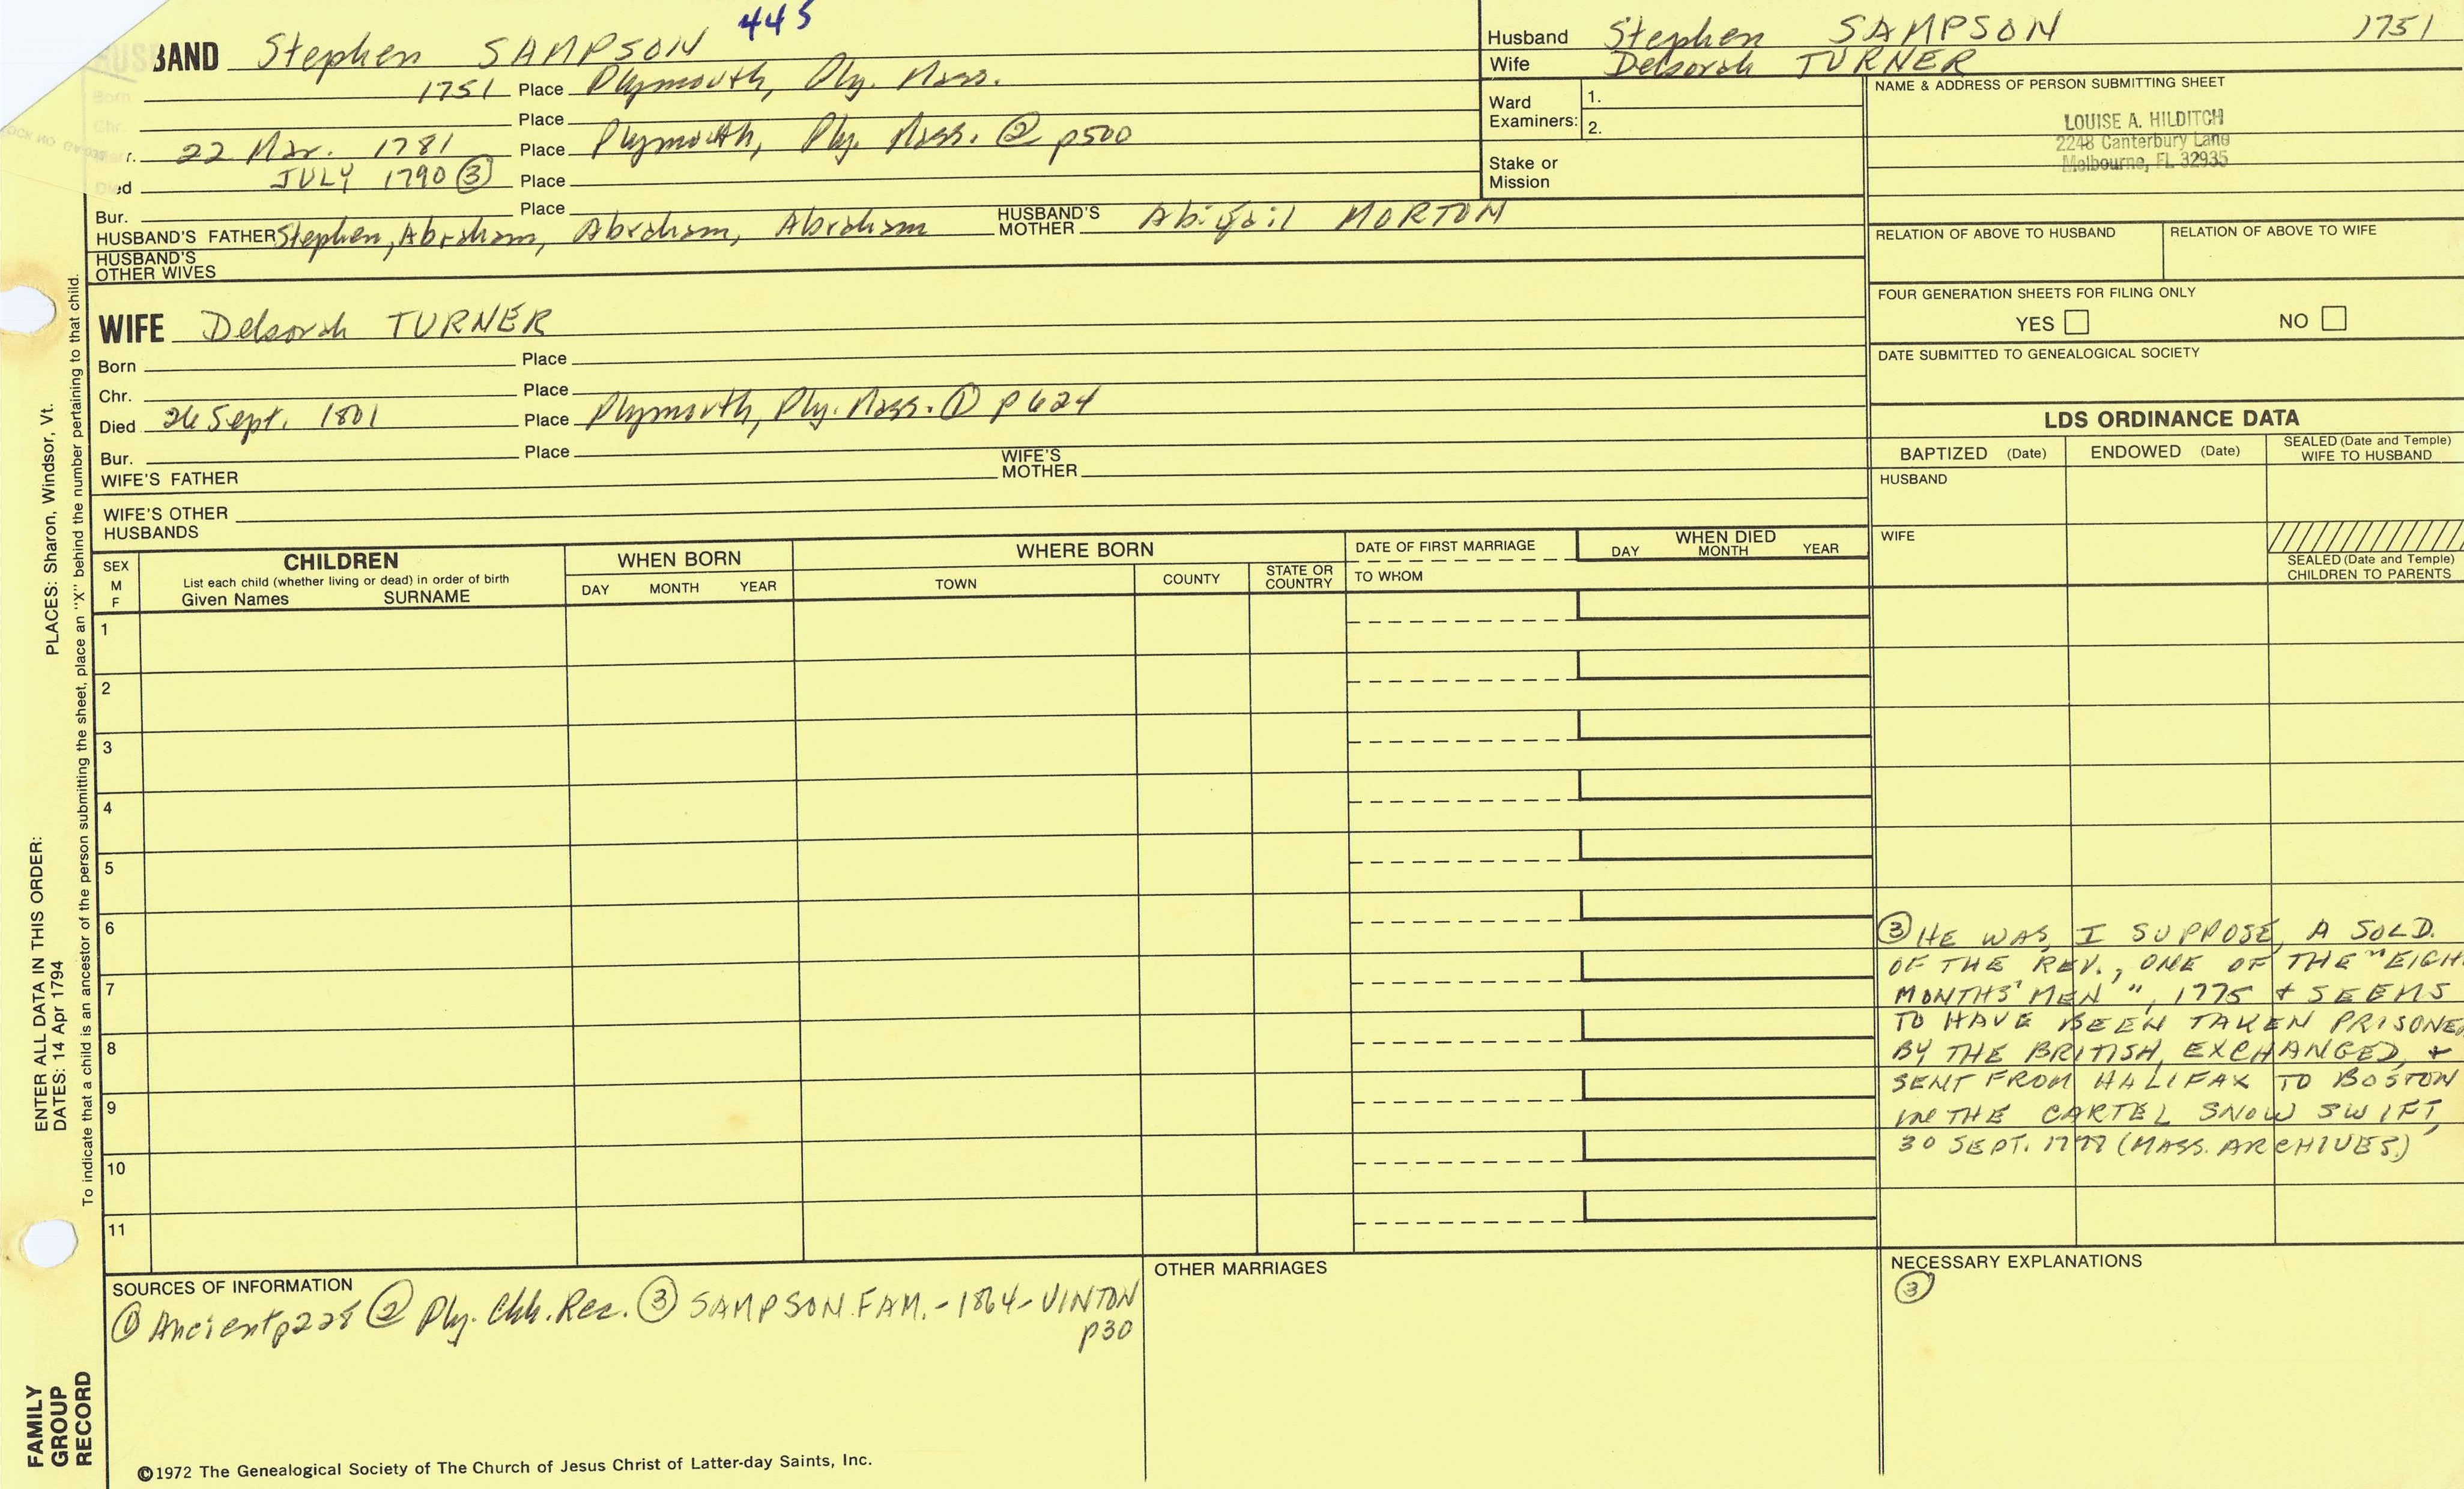 445
BAND Stephen SAMPSON
1751 Place Plymouth, Ply. Mass.
Place
r. 22 Mar. 1781 Place Plymouth, Ply. Mass. ② p500
ed JULY 1790 ③ Place
Bur. Place
HUSBAND'S FATHER Stephen, Abraham, Abraham, Abraham HUSBAND'S MOTHER Abigail MORTON
HUSBAND'S OTHER WIVES
Husband Stephen SAMPSON 1751
Wife Deborah TURNER
Ward Examiners: 1.
2.
Stake or Mission
NAME & ADDRESS OF PERSON SUBMITTING SHEET
LOUISE A. HILDITCH
2248 Canterbury Lane
Melbourne, FL 32935
RELATION OF ABOVE TO HUSBAND RELATION OF ABOVE TO WIFE
FOUR GENERATION SHEETS FOR FILING ONLY
YES NO
DATE SUBMITTED TO GENEALOGICAL SOCIETY
WIFE Deborah TURNER
Born Place
Chr. Place
Died 26 Sept. 1801 Place Plymouth, Ply. Mass. ① p624
Bur. Place
WIFE'S FATHER WIFE'S MOTHER
WIFE'S OTHER HUSBANDS
LDS ORDINANCE DATA
BAPTIZED (Date) ENDOWED (Date) SEALED (Date and Temple) WIFE TO HUSBAND
HUSBAND
WIFE
SEALED (Date and Temple) CHILDREN TO PARENTS
SEX M F
CHILDREN
List each child (whether living or dead) in order of birth
Given Names SURNAME
WHEN BORN
DAY MONTH YEAR
WHERE BORN
TOWN COUNTY STATE OR COUNTRY
DATE OF FIRST MARRIAGE
TO WHOM
WHEN DIED
DAY MONTH YEAR
1
2
3
4
5
6
7
8
9
10
11
③ HE WAS, I SUPPOSE, A SOLD.
OF THE REV., ONE OF THE "EIGH
MONTHS' MEN'", 1775 & SEEMS
TO HAVE BEEN TAKEN PRISONE
BY THE BRITISH, EXCHANGED, &
SENT FROM HALIFAX TO BOSTON
IN THE CARTEL SNOW SWIFT,
30 SEPT. (MASS. ARCHIVES.)
SOURCES OF INFORMATION
① Ancient p228 ② Ply. Chh. Rec. ③ SAMPSON FAM. - 1864 - VINTON
p30
OTHER MARRIAGES
NECESSARY EXPLANATIONS
③
©1972 The Genealogical Society of The Church of Jesus Christ of Latter-day Saints, Inc.
FAMILY
GROUP
RECORD
ENTER ALL DATA IN THIS ORDER:
DATES: 14 Apr 1794 PLACES: Sharon, Windsor, Vt.
To indicate that a child is an ancestor of the person submitting the sheet, place an "X" behind the number pertaining to that child.